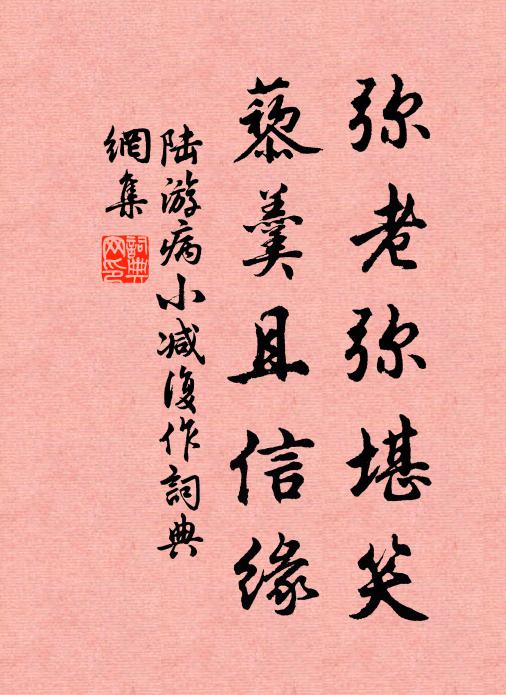 弥老弥堪笑
藜羹且信缘
陆游病小减復作詞典
網集
詞典
网印